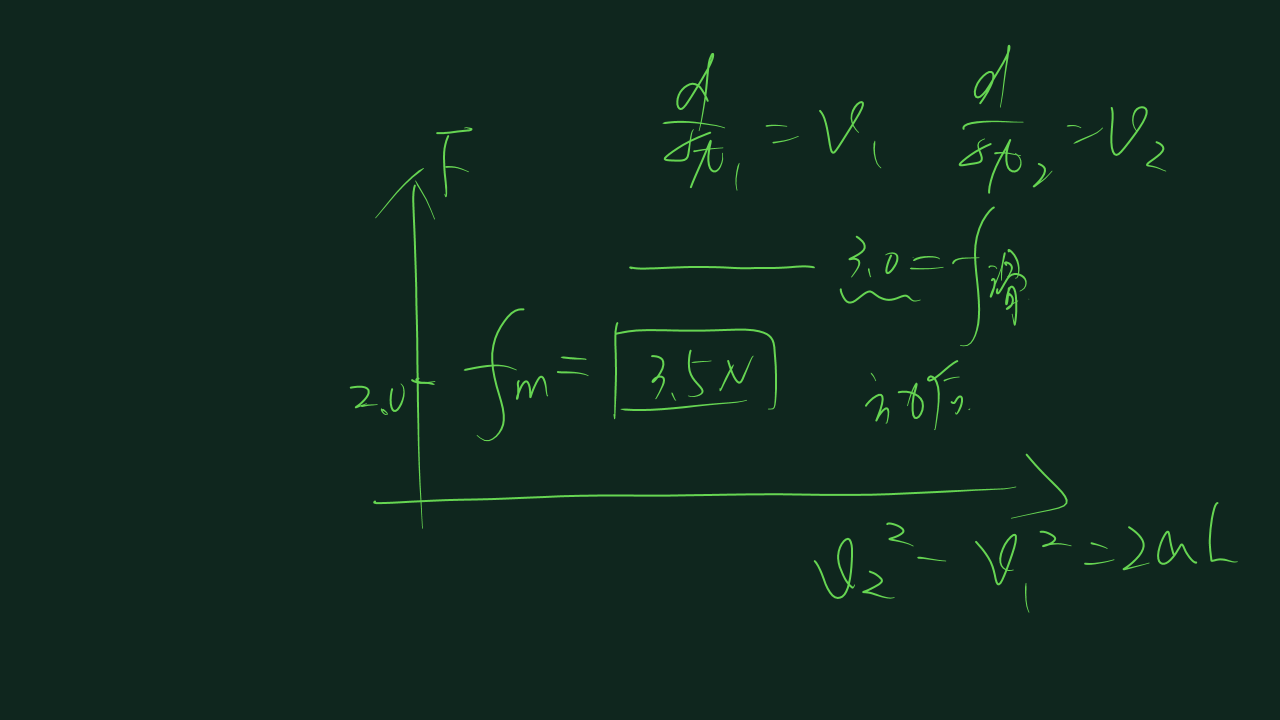 d/δt₁ = v₁ d/δt₂ = v₂
F
3.0 = f滑
fm = 3.5N
2.0
v₂² - v₁² = 2aL